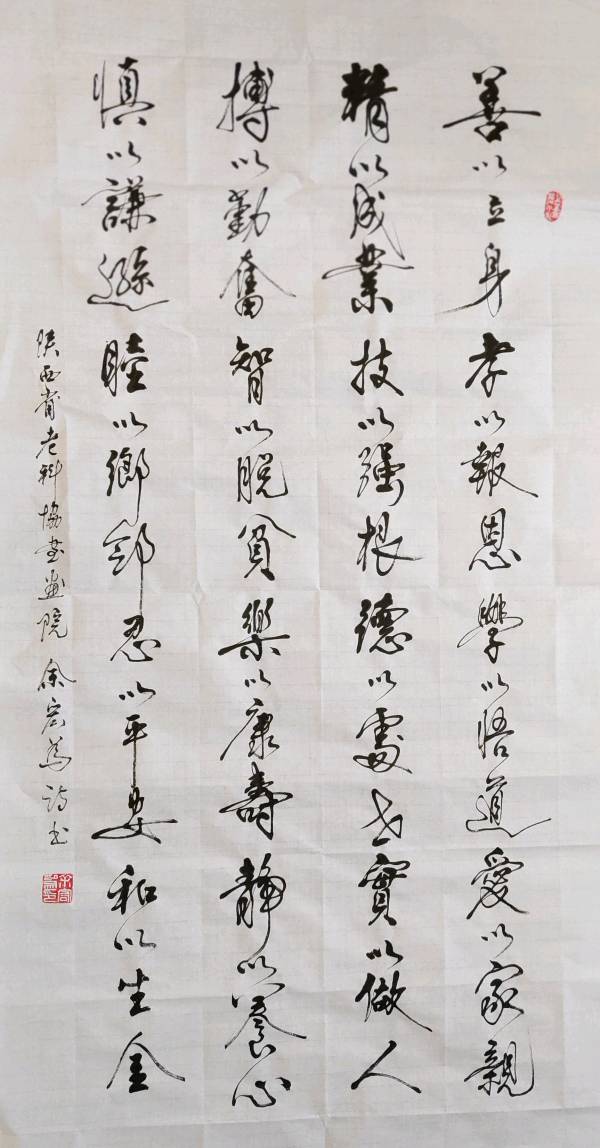 善以立身孝以報恩學以悟道愛以家親
精以成業技以强根德以處世實以做人
搏以勤奮智以脱貧樂以康壽静以養心
慎以謙遜睦以鄉鄰忍以平安和以生金
陕西省老科协書画院余宏為詩书